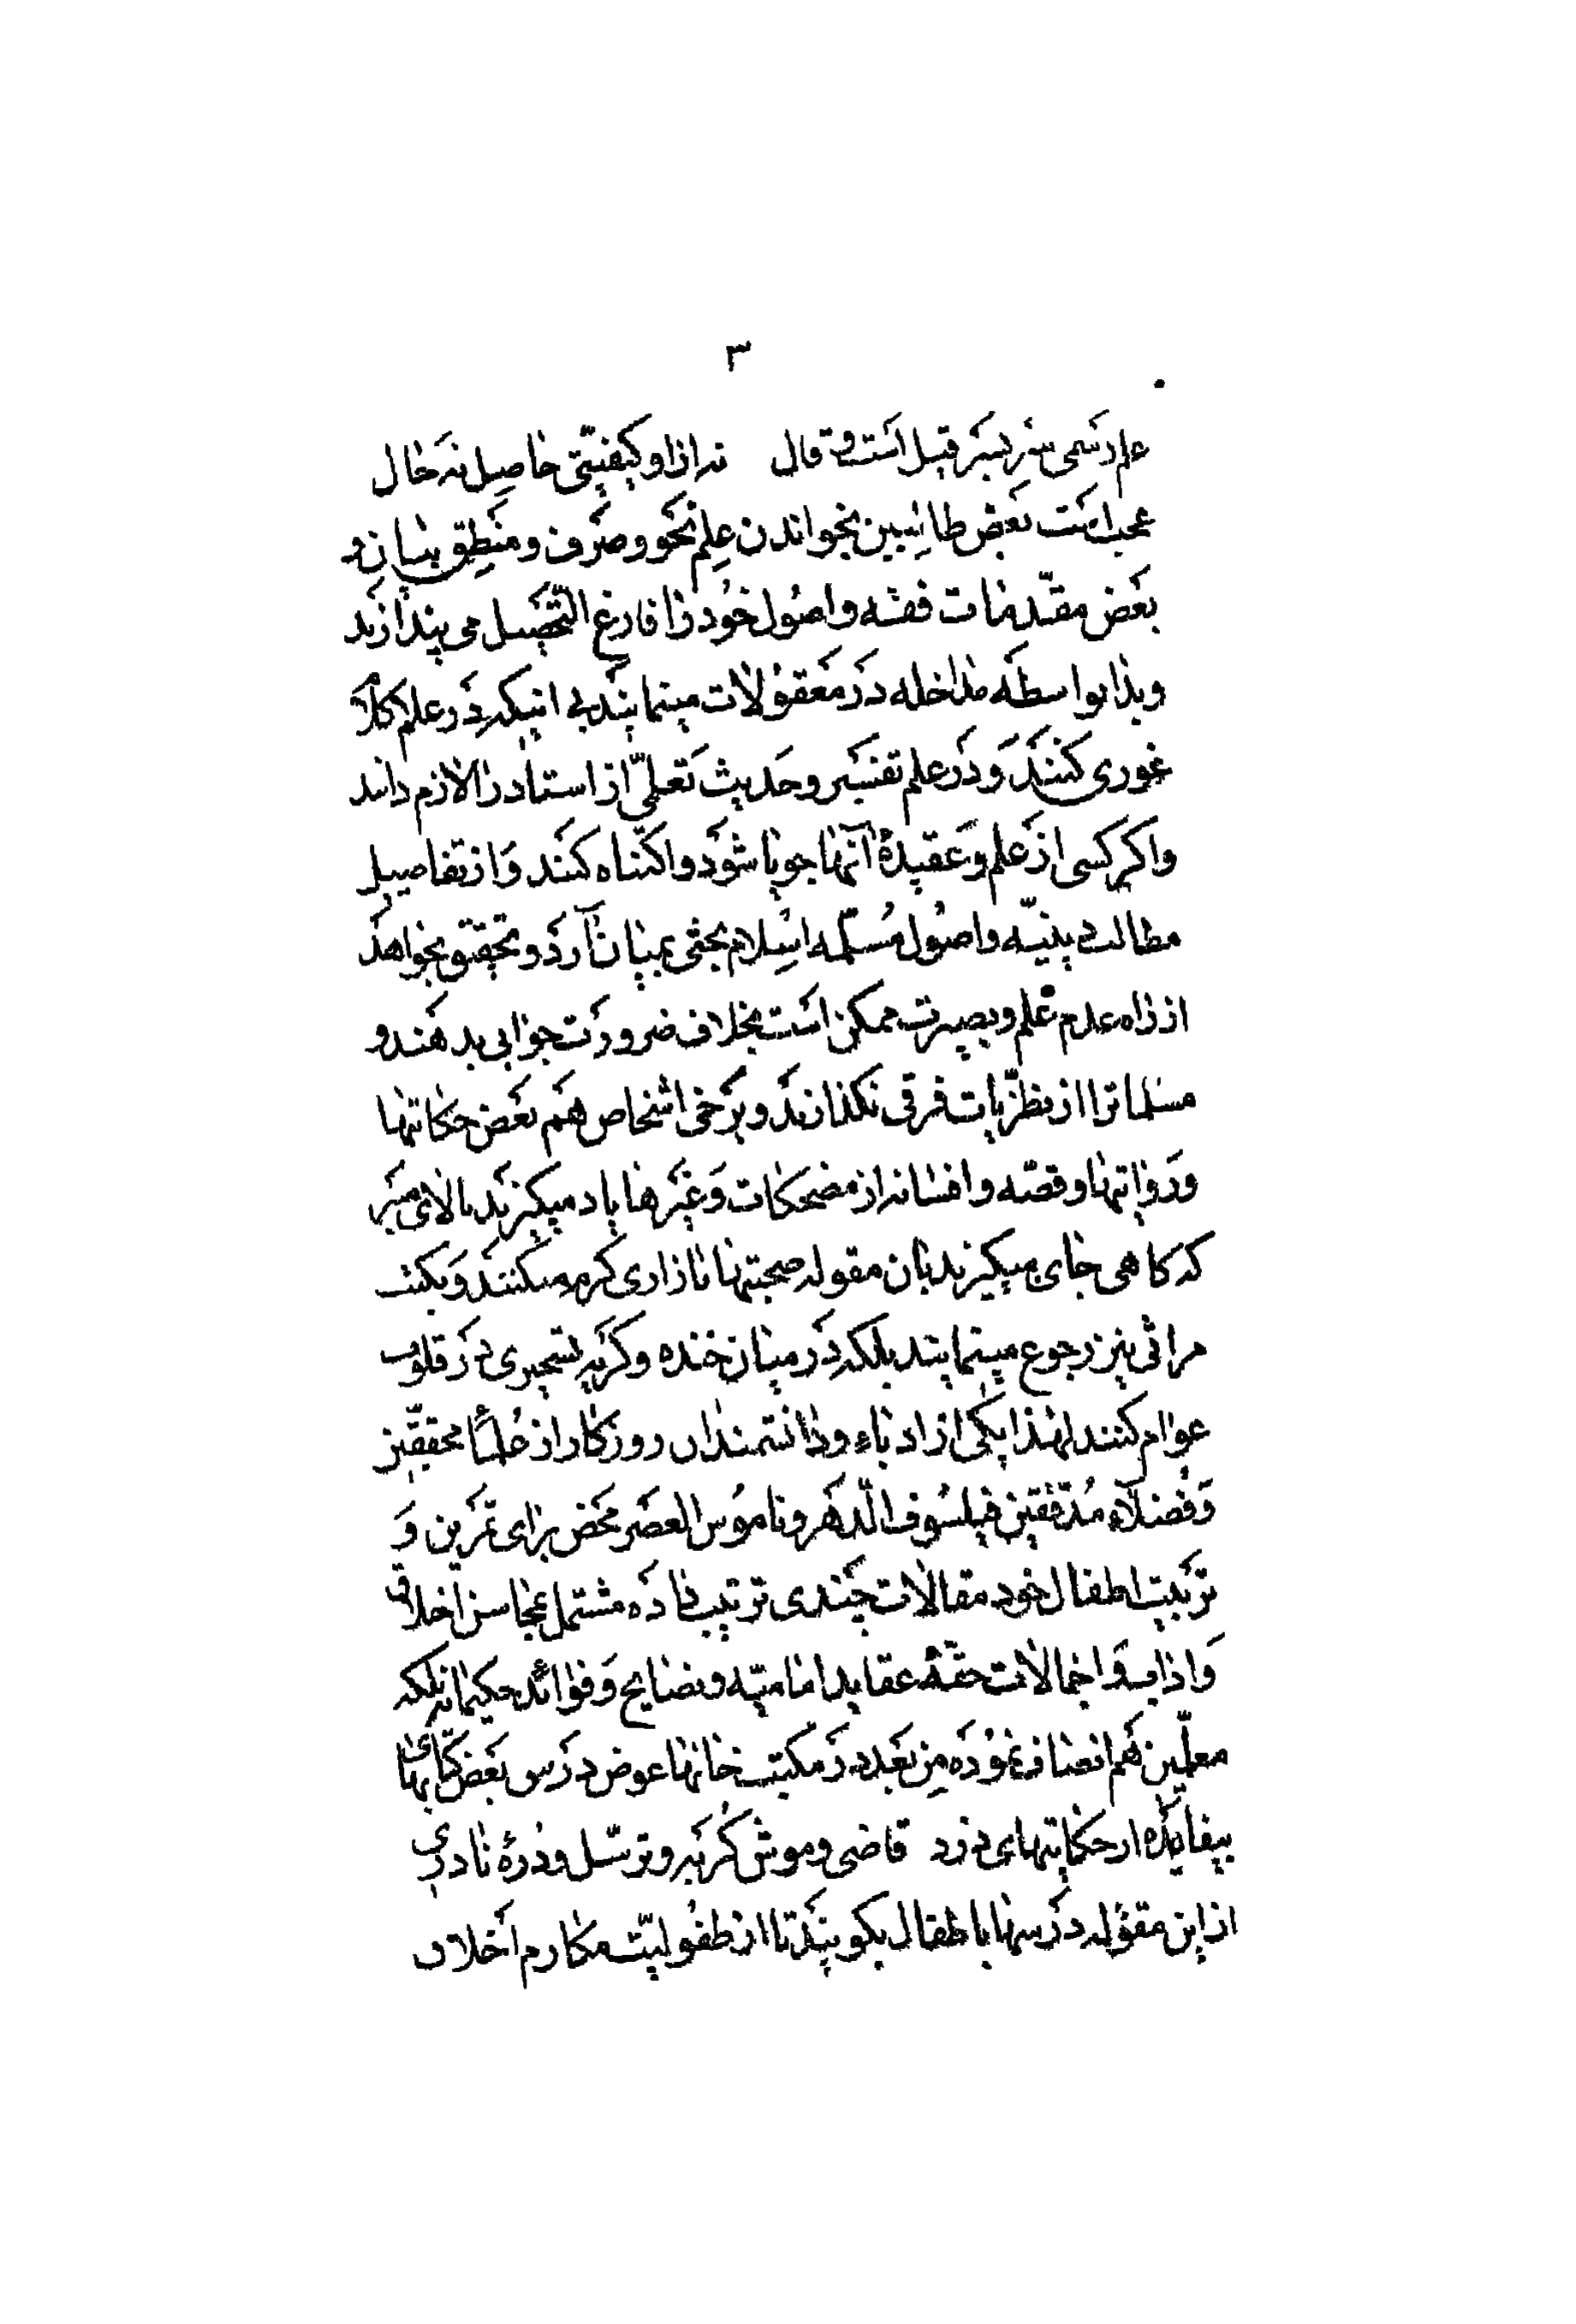 ۳
علم رسمی سر بسر قیل است و قال نه از او کیفیتی حاصل نه حال
عجب است بعض طالبین بخواندن علم نحو و صرف و منطق بیان و
بعض مقدّمات فقه و اصول خود را فارغ التّحصیل می پندارند
و بدا بواسطه مداخله در معقولات مینمایند بی اینکه در علم کلام
غوری کنند و در علم تفسیر و حدیث تعلمی از استاد را لازم دانند
و اگر کسی از علم و عقیدۀ آنها جویا شود و اکتناه کند و از تفاصیل
مطالب دینیّه و اصول مُسلّمه اسلام بحثی بمیان آرد و تحقیق بخواهد
از راه عدم علم و بصیرت ممکن است بخلاف ضرورت جوابی بدهند و
مسلماترا از نظرّیات فرقی نگذارند و برخی اشخاص هم بعض حکایتها
و روایتها و قصّه و افسانه از مضحکات و غیرها یاد میگیرند بالای منبر
که گاهی جای میگیرند بان مقوله صحبتها بازاری گرم میکنند و بکتب
مراثی نیز رجوع مینمایند بلکه در میان خنده و گریه تسخیری در قلوب
عوام کنند لهذا یکی از ادباء و دانشمندان روزگار از عُلماء محققّین
و فُضلاء مُدقّقین فیلسوف الدّهر و ناموس العصر محض برای تمرین و
تربیت اطفال خود مقالات چندی ترتیب داده مشتمل بمحاسن اخلاق
و اداب و اجمالات حقّۀ عقاید امامیّه و نصایح و فوائد حکیمانه بلکه
معلّمین هم انصاف نموده من بعد در مکتب خانها عوض درس بعض کتابهای
بیفایده از حکایتهای دزد قاضی و موش گربه و ترسّل و دُرۀ نادری
از این مقوله درسها باطفال بگویند تا از طفولیّت مکارم اخلاق